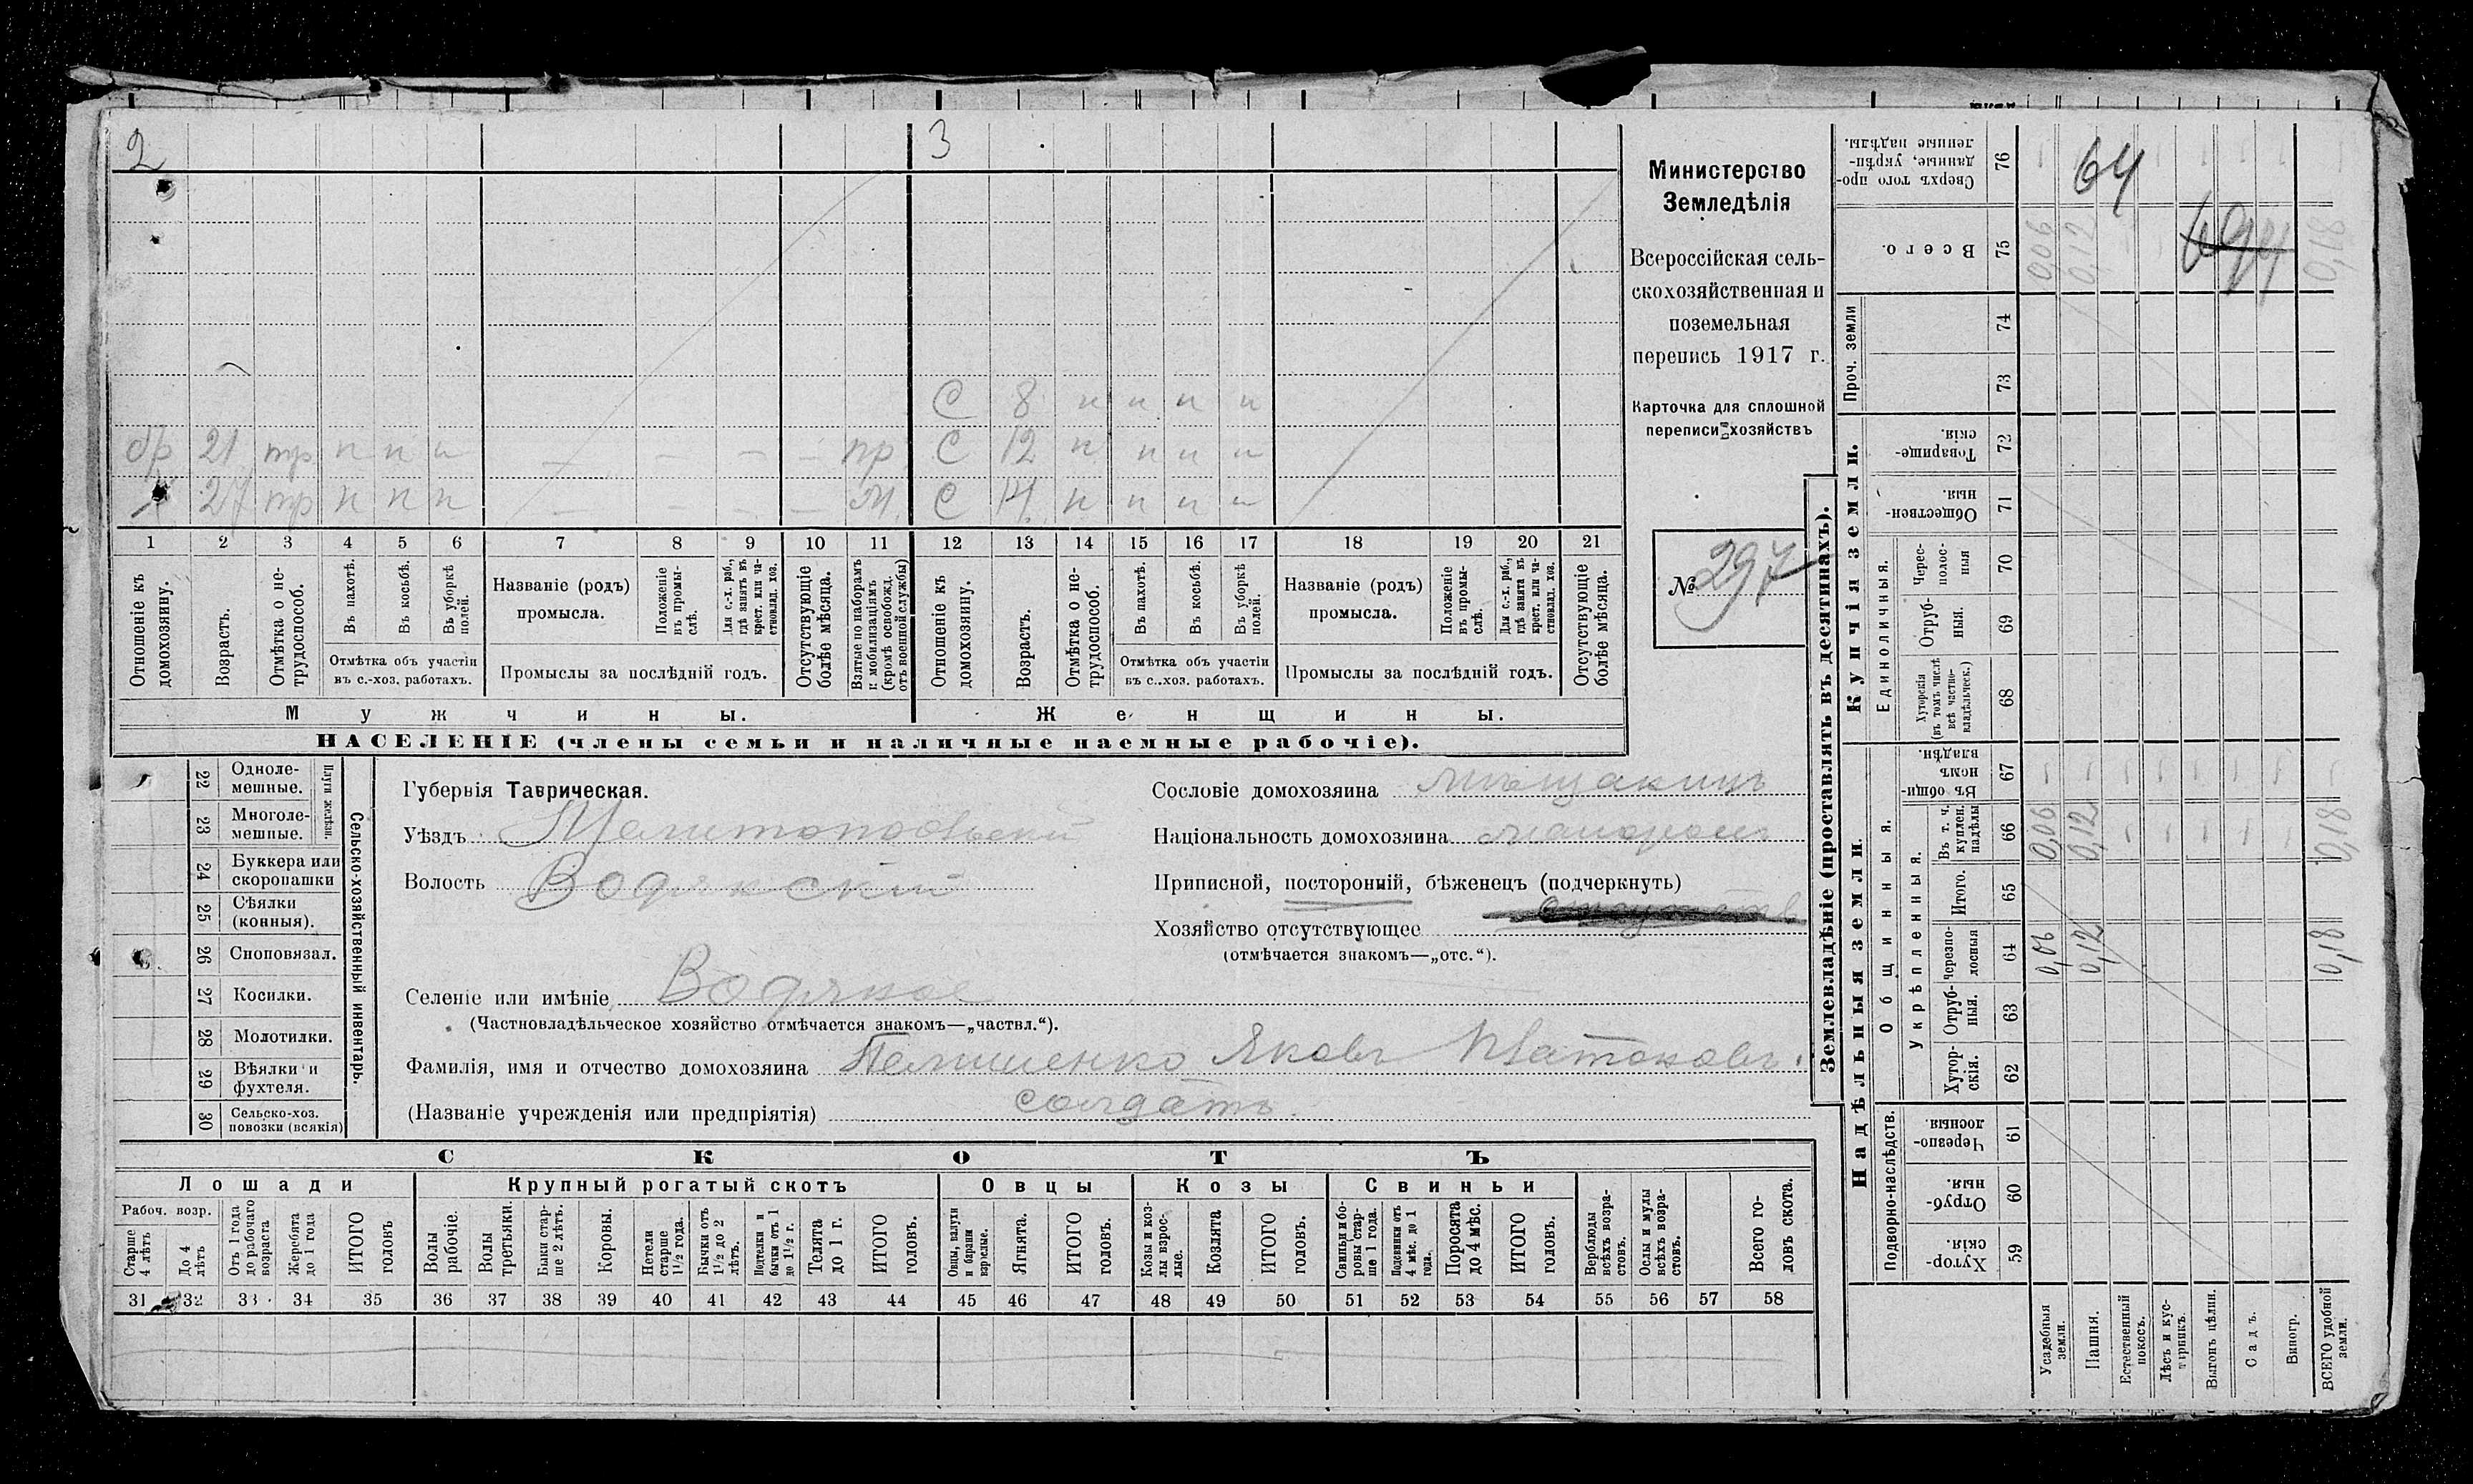 2 3
С 8 н н н н
бр 21 тр п п п — — — — пр С 12 н н н н
Х 27 тр п п п — — — — М. С 14 н н н н
1 2 3 4 5 6 7 8 9 10 11 12 13 14 15 16 17 18 19 20 21
Отношеніе къ домохозяину.
Возрастъ.
Отмѣтка о нетрудоспособ.
Въ пахотѣ.
Въ косьбѣ.
Въ уборкѣ полей.
Отмѣтка объ участіи
въ с.-хоз. работахъ.
Названіе (родъ)
промысла.
Положеніе въ промыслѣ.
Для с.-х. раб., гдѣ занятъ въ крест. или частновлад. хоз.
Промыслы за послѣдній годъ.
Отсутствующіе болѣе мѣсяца.
Взятые по наборамъ и мобилизаціямъ (кромѣ освобожд. отъ военной службы)
Отношеніе къ домохозяину.
Возрастъ.
Отмѣтка о нетрудоспособ.
Въ пахотѣ.
Въ косьбѣ.
Въ уборкѣ полей.
Отмѣтка объ участіи
въ с..хоз. работахъ.
Названіе (родъ)
промысла.
Положеніе въ промыслѣ.
Для с.-х. раб., гдѣ занята въ крест. или частновлад. хоз.
Промыслы за послѣдній годъ.
Отсутствующіе болѣе мѣсяца.
Мужчины. Женщины.
НАСЕЛЕНІЕ (члены семьи и наличные наемные рабочіе).
Министерство
Земледѣлія
Всероссійская сель-
скохозяйственная и
поземельная
перепись 1917 г.
Карточка для сплошной
переписи хозяйствъ
№ 297
22 Одноле-
мешные.
23 Многоле-
мешные.
Плуги желѣзн.
24 Буккера или
скоропашки
25 Сѣялки
(конныя).
26 Сноповязал.
27 Косилки.
28 Молотилки.
29 Вѣялки и
фухтеля.
30 Сельско-хоз.
повозки (всякія)
Сельско-хозяйственный инвентарь.
Губернія Таврическая.
Уѣздъ Мелитопольскій
Волость Водянскій
Селеніе или имѣніе Водяное
(Частновладѣльческое хозяйство отмѣчается знакомъ—„частвл.“).
Сословіе домохозяина мѣщанинъ
Національность домохозяина малороссъ
Приписной, посторонній, бѣженецъ (подчеркнуть)
Хозяйство отсутствующее
(отмѣчается знакомъ—„отс.“).
Фамилія, имя и отчество домохозяина Яковъ
(Названіе учрежденія или предпріятія) солдатъ.
СКОТЪ
Лошади Крупный рогатый скотъ Овцы Козы Свиньи
Рабоч. возр.
Старше 4 лѣтъ
До 4 лѣтъ
Отъ 1 года до рабочаго возраста
Жеребята до 1 года
ИТОГО головъ
Волы рабочіе.
Волы третьяки.
Быки старше 2 лѣтъ.
Коровы.
Нетели старше 1½ года.
Бычки отъ 1½ до 2 лѣтъ.
Подтелки и бычки отъ 1 до 1½ г.
Телята до 1 г.
ИТОГО головъ.
Овцы, валухи и бараны взрослые.
Ягнята.
ИТОГО головъ.
Козы и козлы взрослые.
Козлята
ИТОГО головъ.
Свиньи и боровы старше 1 года.
Подсвинки отъ 4 мѣс. до 1 года.
Поросята до 4 мѣс.
ИТОГО головъ.
Верблюды всѣхъ возрастовъ.
Ослы и мулы всѣхъ возрастовъ.
Всего головъ скота.
31 32 33 34 35 36 37 38 39 40 41 42 43 44 45 46 47 48 49 50 51 52 53 54 55 56 57 58
Землевладѣніе (проставлять въ десятинахъ).
Купчія земли.
Надѣльныя земли.
Сверхъ того проданные, укрѣпленные надѣлы. 76 64
Всего. 75 0,06 0,12 0,18
Проч. земли 74 73
Товарищескія. 72
Общественныя. 71
Единоличныя.
Чересполосныя 70
Отрубныя. 69
Хуторскія (въ томъ числѣ всѣ частновладѣльческ.) 68
Общинныя.
Въ общинномъ владѣн. 67
Укрѣпленныя.
Въ т. ч. куплен. надѣлы 66 0,06 0,12 0,18
Итого. 65
Черезполосныя 64 0,06 0,12 0,18
Отрубныя. 63
Хуторскія. 62
Подворно-наслѣдств.
Черезполосныя. 61
Отрубныя. 60
Хуторскія. 59
Усадебныя земли.
Пашня.
Естественный покосъ.
Лѣсъ и кустарникъ.
Выгонъ цѣлин.
Садъ.
Виногр.
ВСЕГО удобной земли.